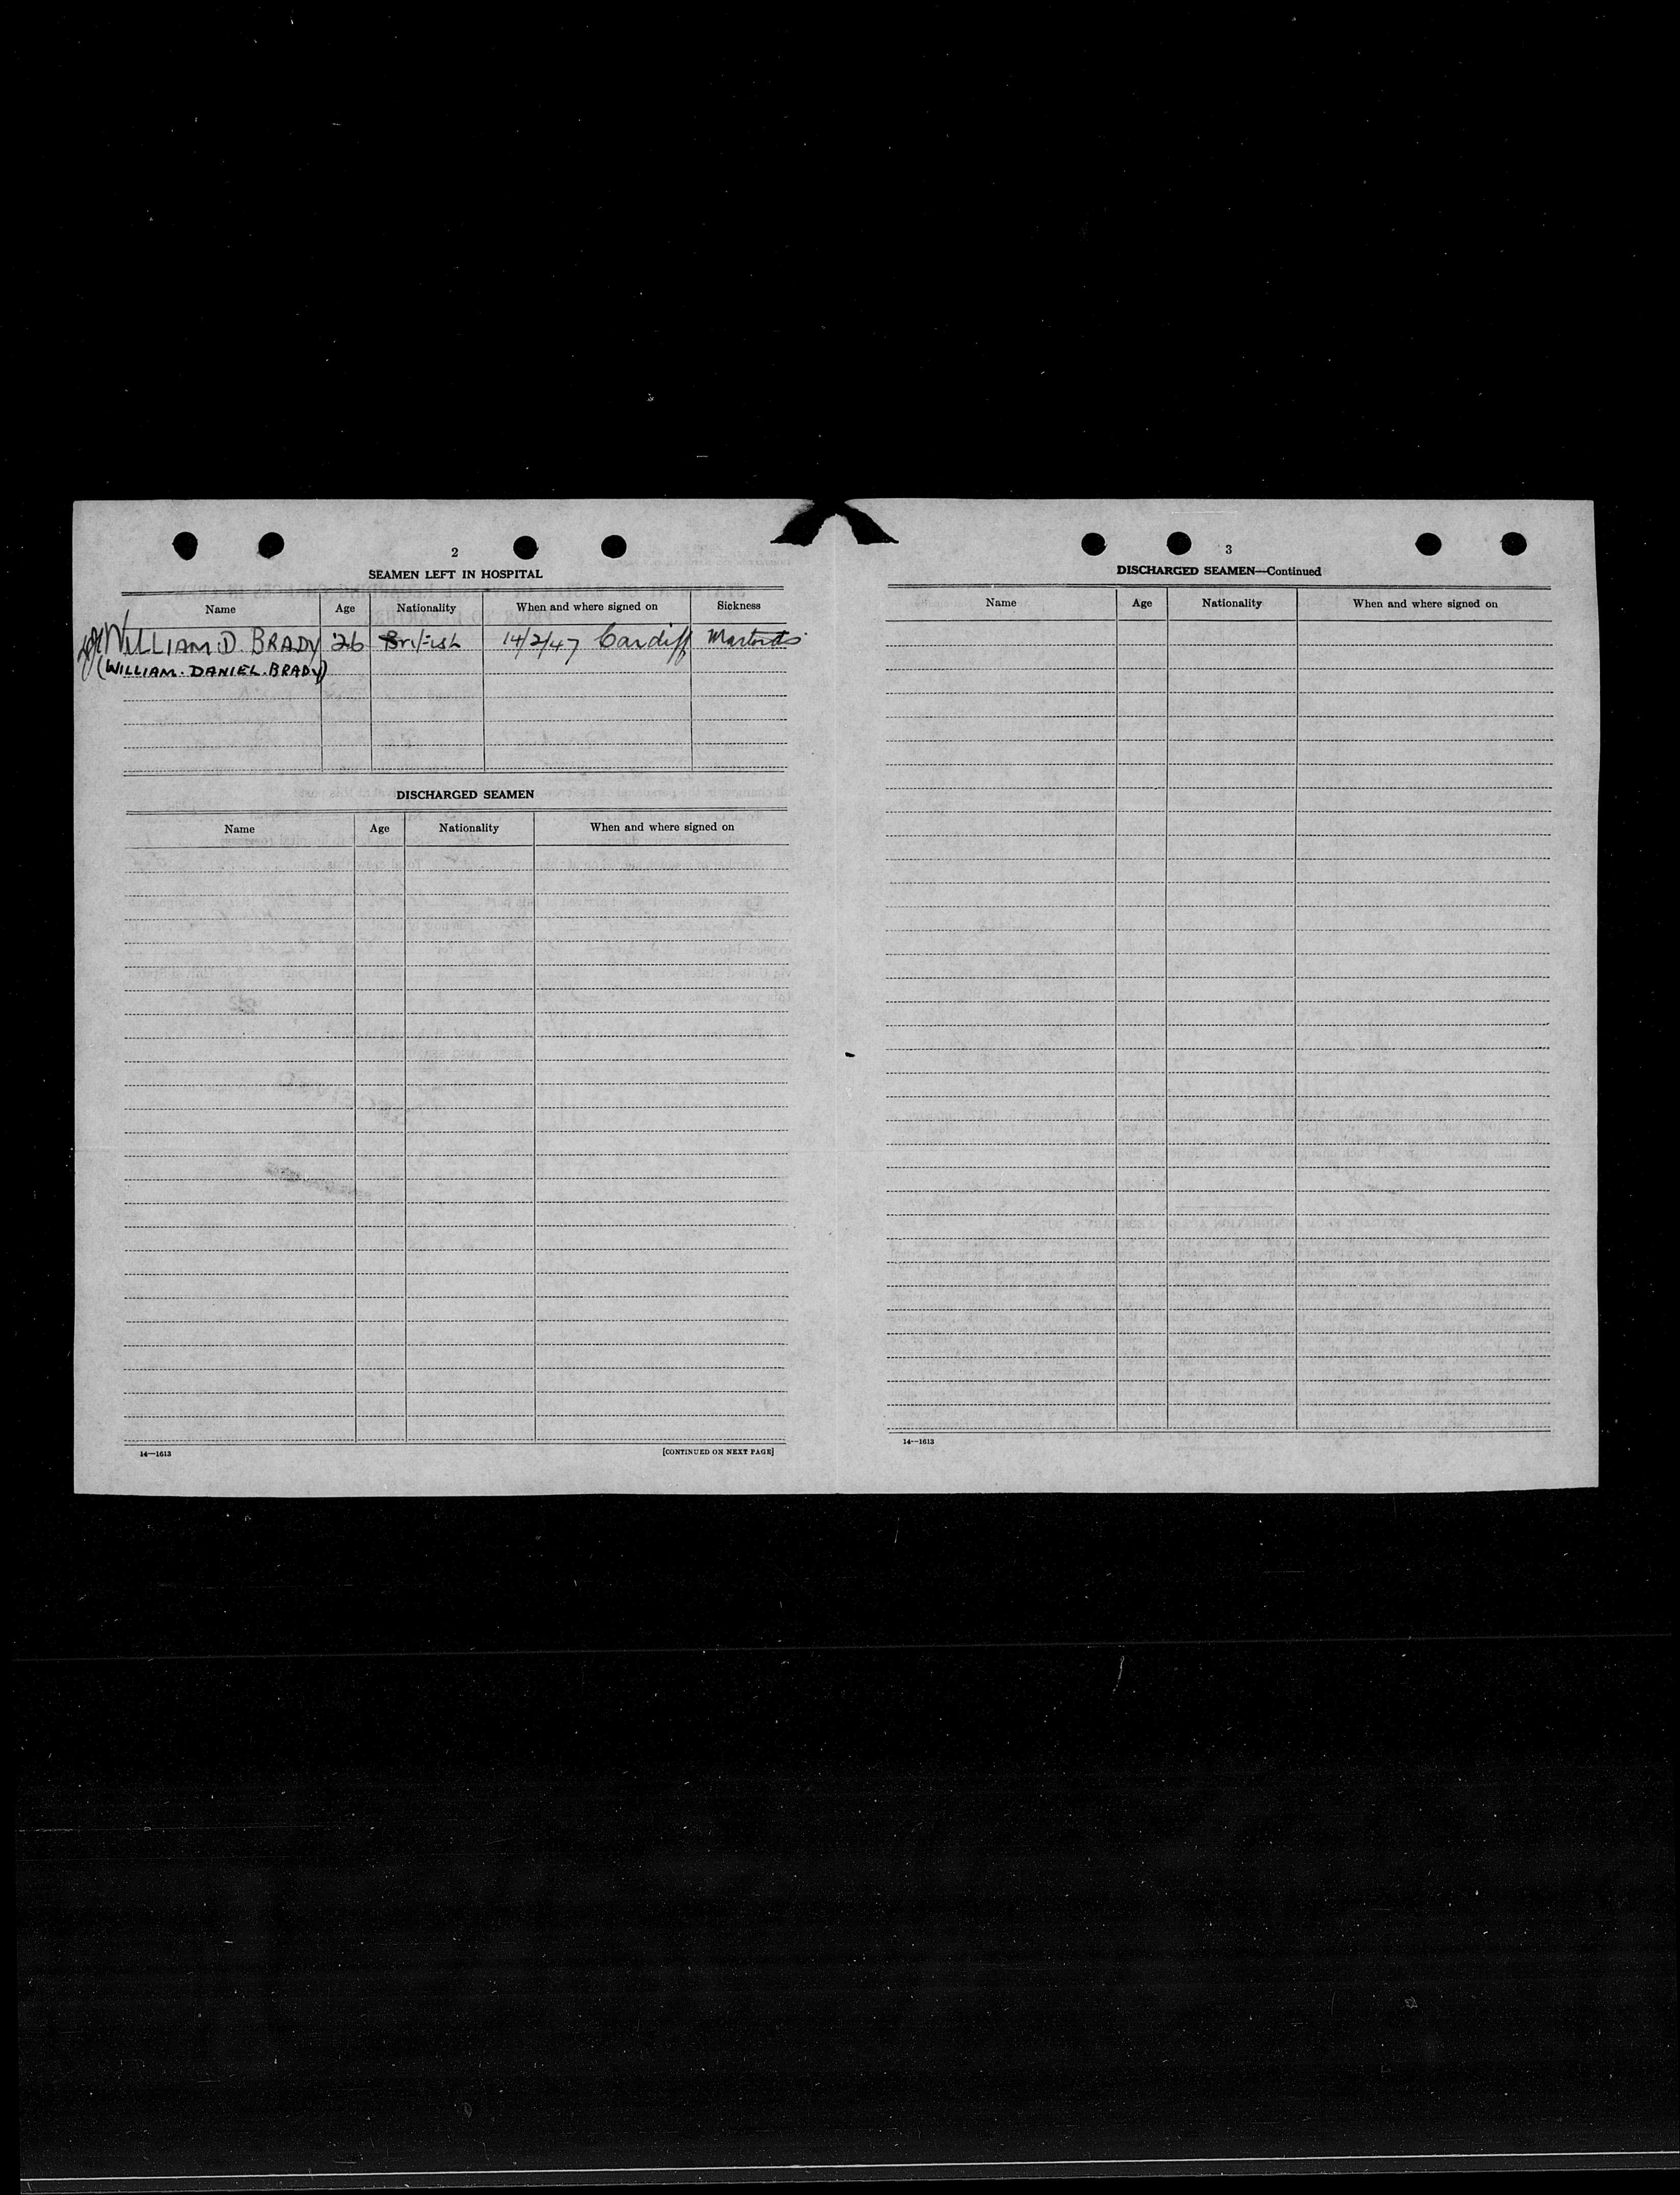 2
SEAMEN LEFT IN HOSPITAL
Name Age Nationality When and where signed on Sickness
WILLIAM. D. BRADY 26 British 14/2/47 Cardiff
(WILLIAM. DANIEL. BRADY)
DISCHARGED SEAMEN
Name Age Nationality When and where signed on
14—1613 [CONTINUED ON NEXT PAGE]
3
DISCHARGED SEAMEN—Continued
Name Age Nationality When and where signed on
14—1613